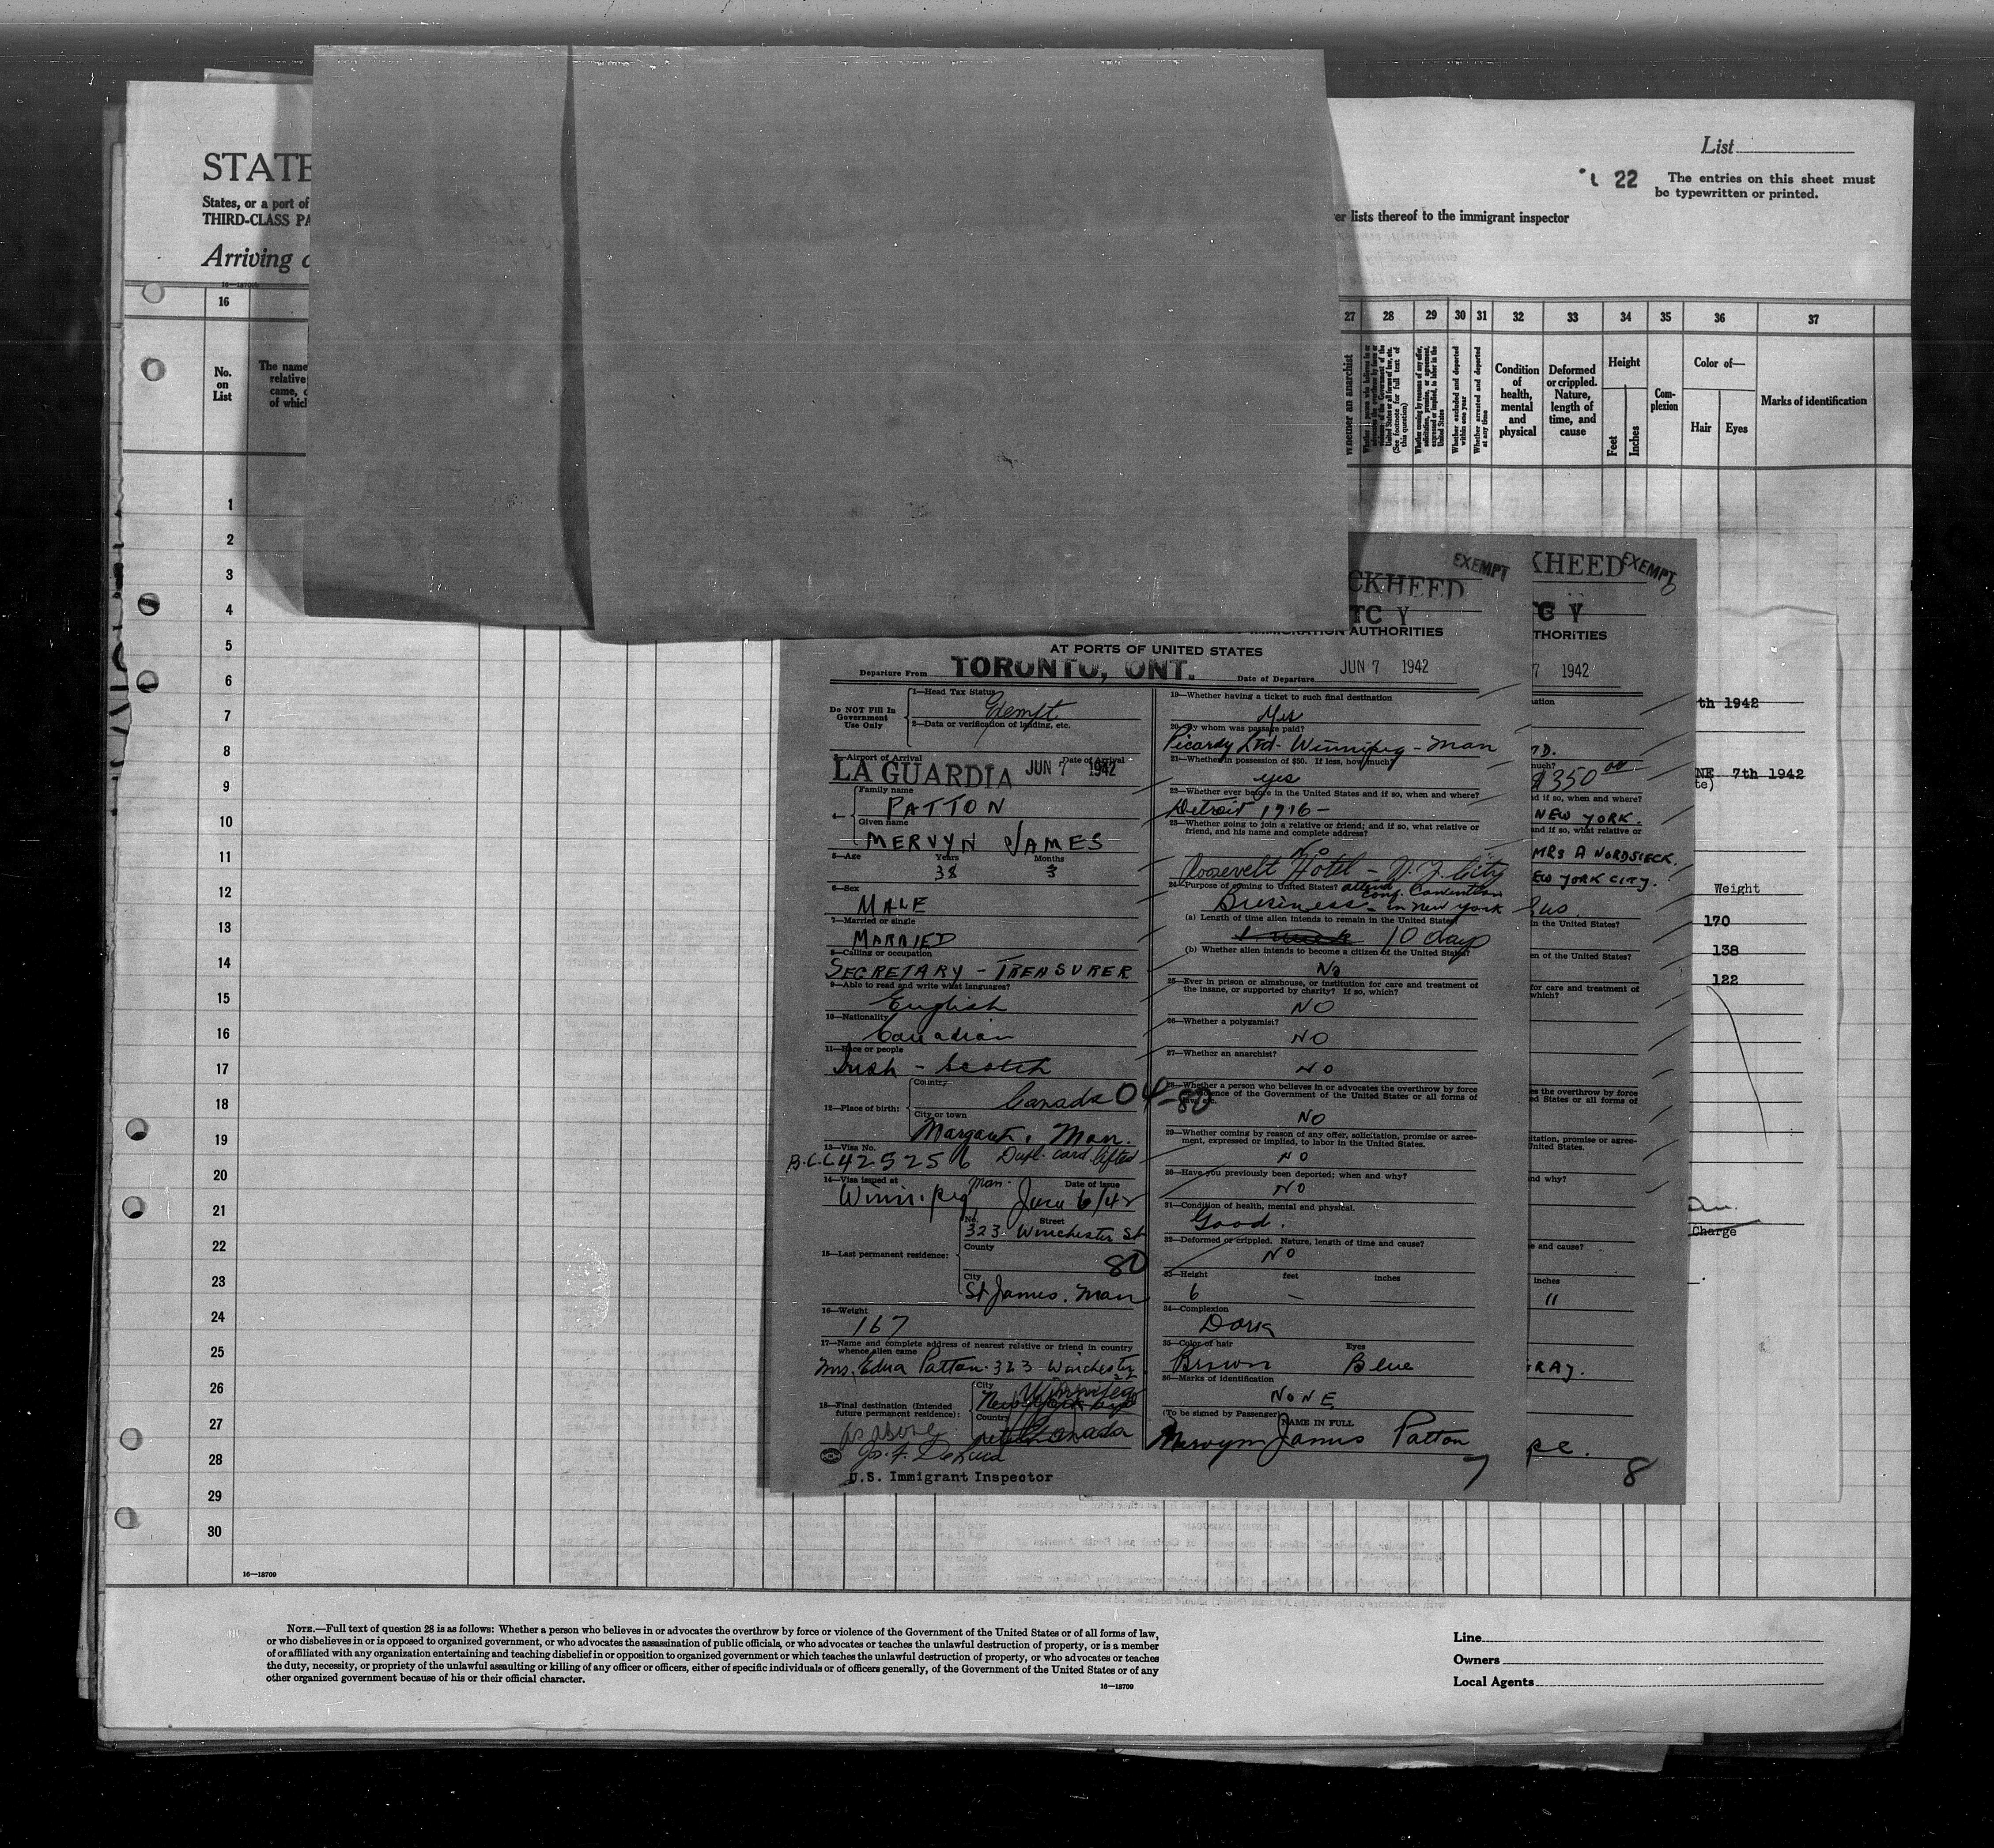 List
22 The entries on this sheet must
be typewritten or printed.
STATE
States, or a port of
THIRD-CLASS PA
er lists thereof to the immigrant inspector
Arriving
16
No.
on
List
The name
relative
came,
of which
27 28 29 30 31 32 33 34 35 36 37
Whether an anarchist
(See footnote for full text of this question)
Whether excluded and deported within one year
Whether arrested and deported at any time
Condition
of
health,
mental
and
physical
Deformed
or crippled.
Nature,
length of
time, and
cause
Height
Feet
Inches
Com-
plexion
Color of—
Hair Eyes
Marks of identification
1
2
3
4
5
6
7
8
9
10
11
12
13
14
15
16
17
18
19
20
21
22
23
24
25
26
27
28
29
30
16—18709
EXEMPT
CKHEED
TC Y
IMMIGRATION AUTHORITIES
AT PORTS OF UNITED STATES
Departure From TORONTO, ONT. Date of Departure JUN 7 1942
Do NOT Fill In
Government
Use Only
1—Head Tax Status
Exempt
2—Data or verification of landing, etc.
3—Airport of Arrival Date of Arrival
LA GUARDIA JUN 7 1942
4— Family name
PATTON
Given name
MERVYN JAMES
5—Age Years Months
38 3
6—Sex
MALE
7—Married or single
MARRIED
8—Calling or occupation
SECRETARY - TREASURER
9—Able to read and write what languages?
English
10—Nationality
Canadian
11—Race or people
Irish - Scotch
12—Place of birth: Country
Canada 04-80
City or town
Margaret, Man.
13—Visa No.
B.C.C 425256 Dupl. card lifted
14—Visa issued at Date of issue
Winnipeg Man. June 6/42
15—Last permanent residence: No. Street
323 Winchester St
County
80
City
St James. Man
16—Weight
167
17—Name and complete address of nearest relative or friend in country
whence alien came
Mrs. Edna Patton. 323 Winchester
18—Final destination (Intended
future permanent residence):
City
Winnipeg
Country
Canada
as above
U.S. Immigrant Inspector
19—Whether having a ticket to such final destination
Yes
20—By whom was passage paid?
Picardy Ltd - Winnipeg - Man
21—Whether in possession of $50. If less, how much?
yes
22—Whether ever before in the United States and if so, when and where?
Detroit 1916 -
23—Whether going to join a relative or friend; and if so, what relative or
friend, and his name and complete address?
No
Roosevelt Hotel - N.Y. City
24—Purpose of coming to United States? attend
Conf. Convention
Business - in New York
(a) Length of time alien intends to remain in the United States?
1 week 10 days
(b) Whether alien intends to become a citizen of the United States?
No
25—Ever in prison or almshouse, or institution for care and treatment of
the insane, or supported by charity? If so, which?
NO
26—Whether a polygamist?
NO
27—Whether an anarchist?
NO
28—Whether a person who believes in or advocates the overthrow by force
or violence of the Government of the United States or all forms of
NO
29—Whether coming by reason of any offer, solicitation, promise or agree-
ment, expressed or implied, to labor in the United States.
NO
30—Have you previously been deported; when and why?
NO
31—Condition of health, mental and physical.
Good.
32—Deformed or crippled. Nature, length of time and cause?
NO
33—Height feet inches
6 —
34—Complexion
Dark
35—Color of hair Eyes
Brown Blue
36—Marks of identification
NONE
(To be signed by Passenger) NAME IN FULL
Mervyn James Patton
7
KHEED EXEMPT
C Y
THORITIES
7 1942
ation
TD.
much?
$350 00
nd if so, when and where?
NEW YORK.
and if so, what relative or
MRS A NORDSIECK.
EW YORK CITY.
in the United States?
en of the United States?
for care and treatment of
which?
es the overthrow by force
ed States or all forms of
itation, promise or agree-
United States.
nd why?
e and cause?
inches
11
RAY.
8
th 1942
NE 7th 1942
te)
Weight
170
138
122
Charge
NOTE.—Full text of question 28 is as follows: Whether a person who believes in or advocates the overthrow by force or violence of the Government of the United States or of all forms of law,
or who disbelieves in or is opposed to organized government, or who advocates the assassination of public officials, or who advocates or teaches the unlawful destruction of property, or is a member
of or affiliated with any organization entertaining and teaching disbelief in or opposition to organized government or which teaches the unlawful destruction of property, or who advocates or teaches
the duty, necessity, or propriety of the unlawful assaulting or killing of any officer or officers, either of specific individuals or of officers generally, of the Government of the United States or of any
other organized government because of his or their official character.
16—18709
Line
Owners
Local Agents